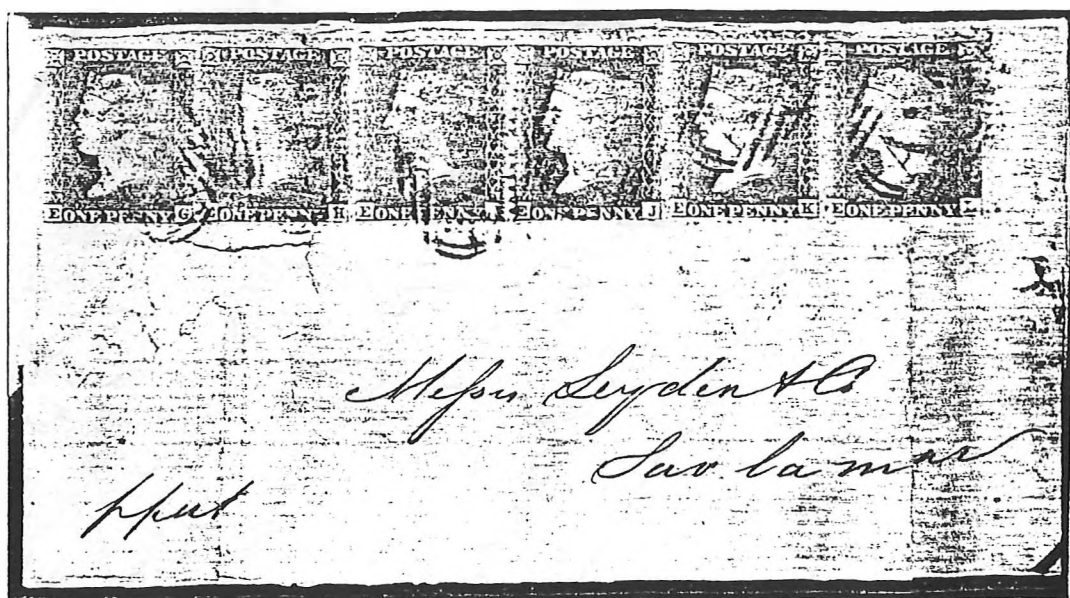 POSTAGE POSTAGE POSTAGE POSTAGE POSTAGE POSTAGE
E ONE PENNY G E ONE PENNY H E ONE PENNY I E ONE PENNY J E ONE PENNY K E ONE PENNY L
Messrs Leyden & Co
Sav. la mar
ppaid